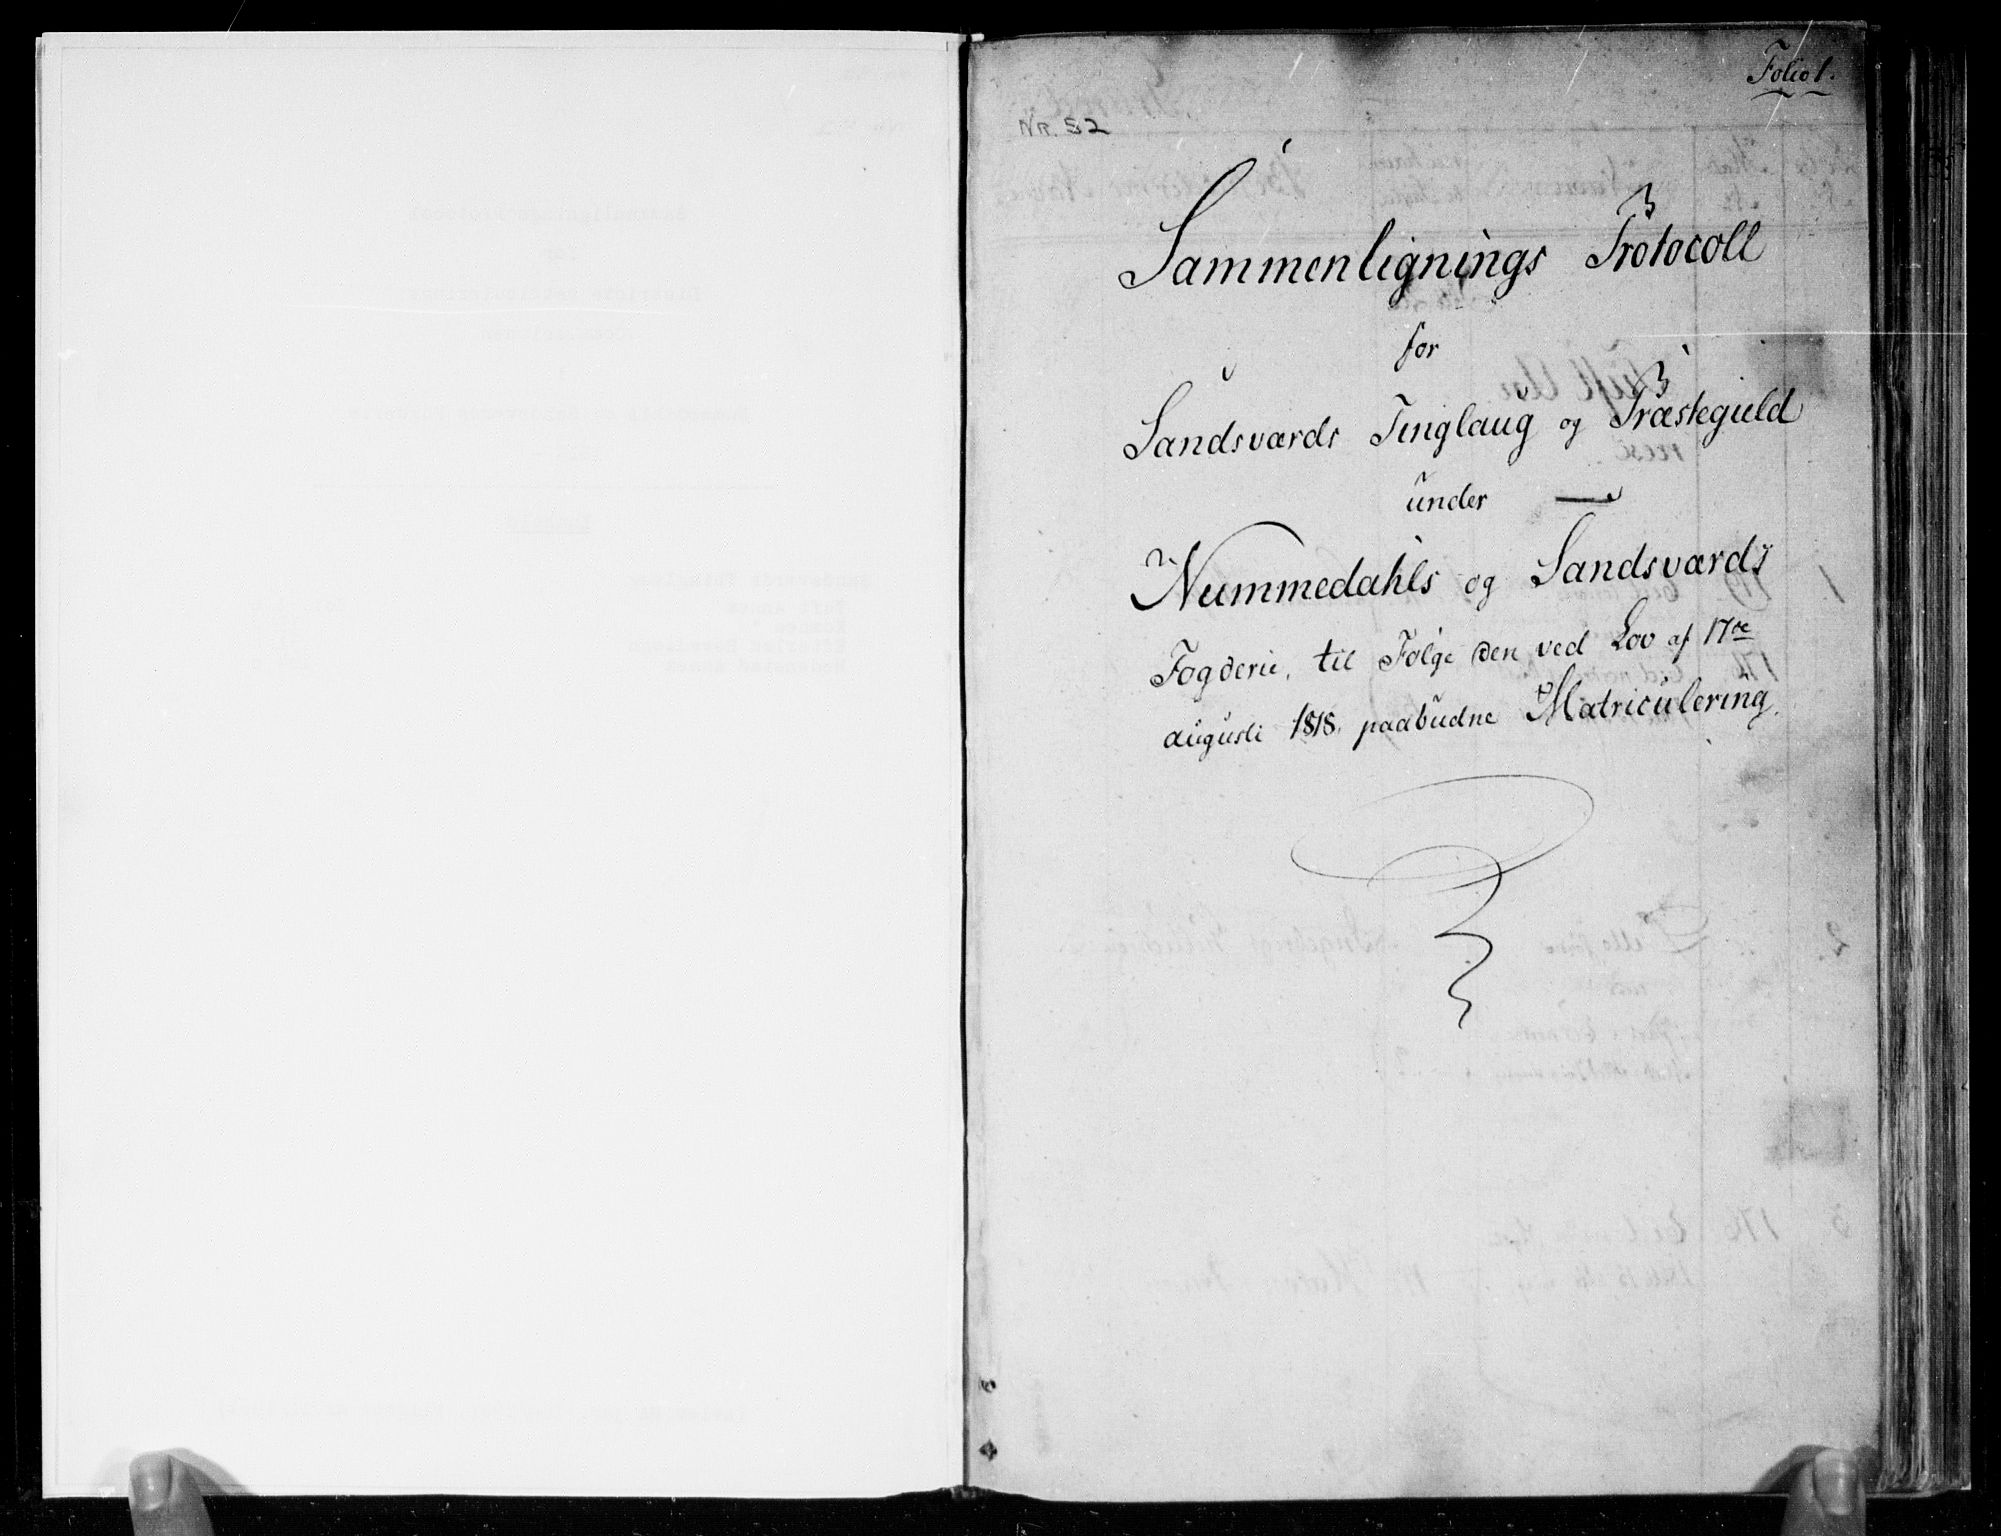 Folio 1.
Nr. 52
Sammenlignings Protocoll
for
Sandsværds Tinglaug og Præstegield
under
Nummedahls og Sandsværds
Fogderie, til Følge den ved Lov af 17de
augusti 1818. paabudne Matriculering.